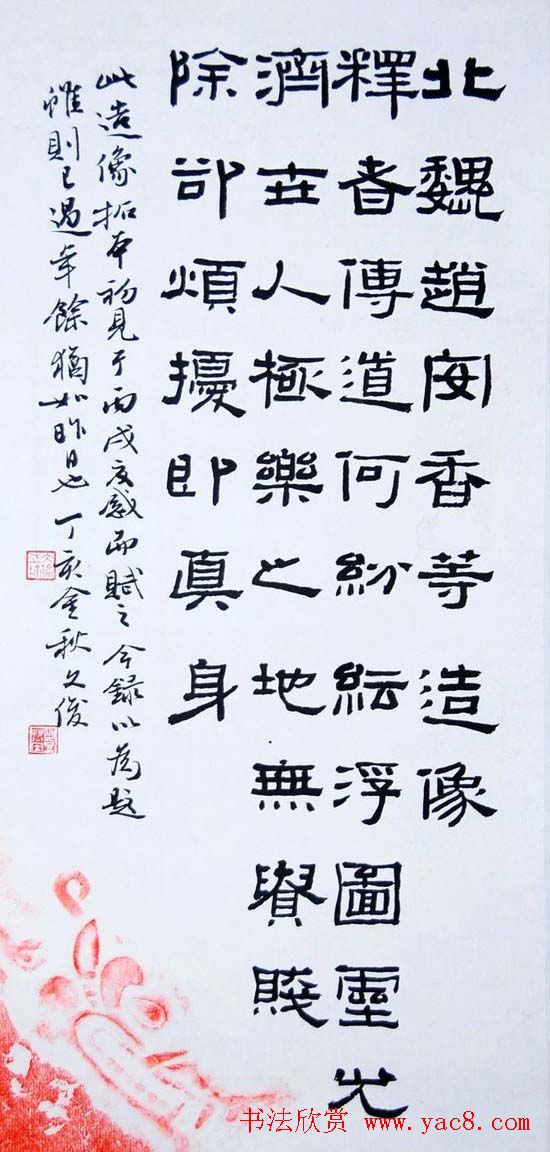 北魏趙安香等造像
釋者傳道何紛紜浮圖靈光
濟世人極樂之地無貴賤
除卻煩擾即真身
此造像拓本初見于丙戌夏感而賦之今録以為題
雖則已過年餘猶如昨日也丁亥金秋文俊
书法欣赏 www.yac8.com